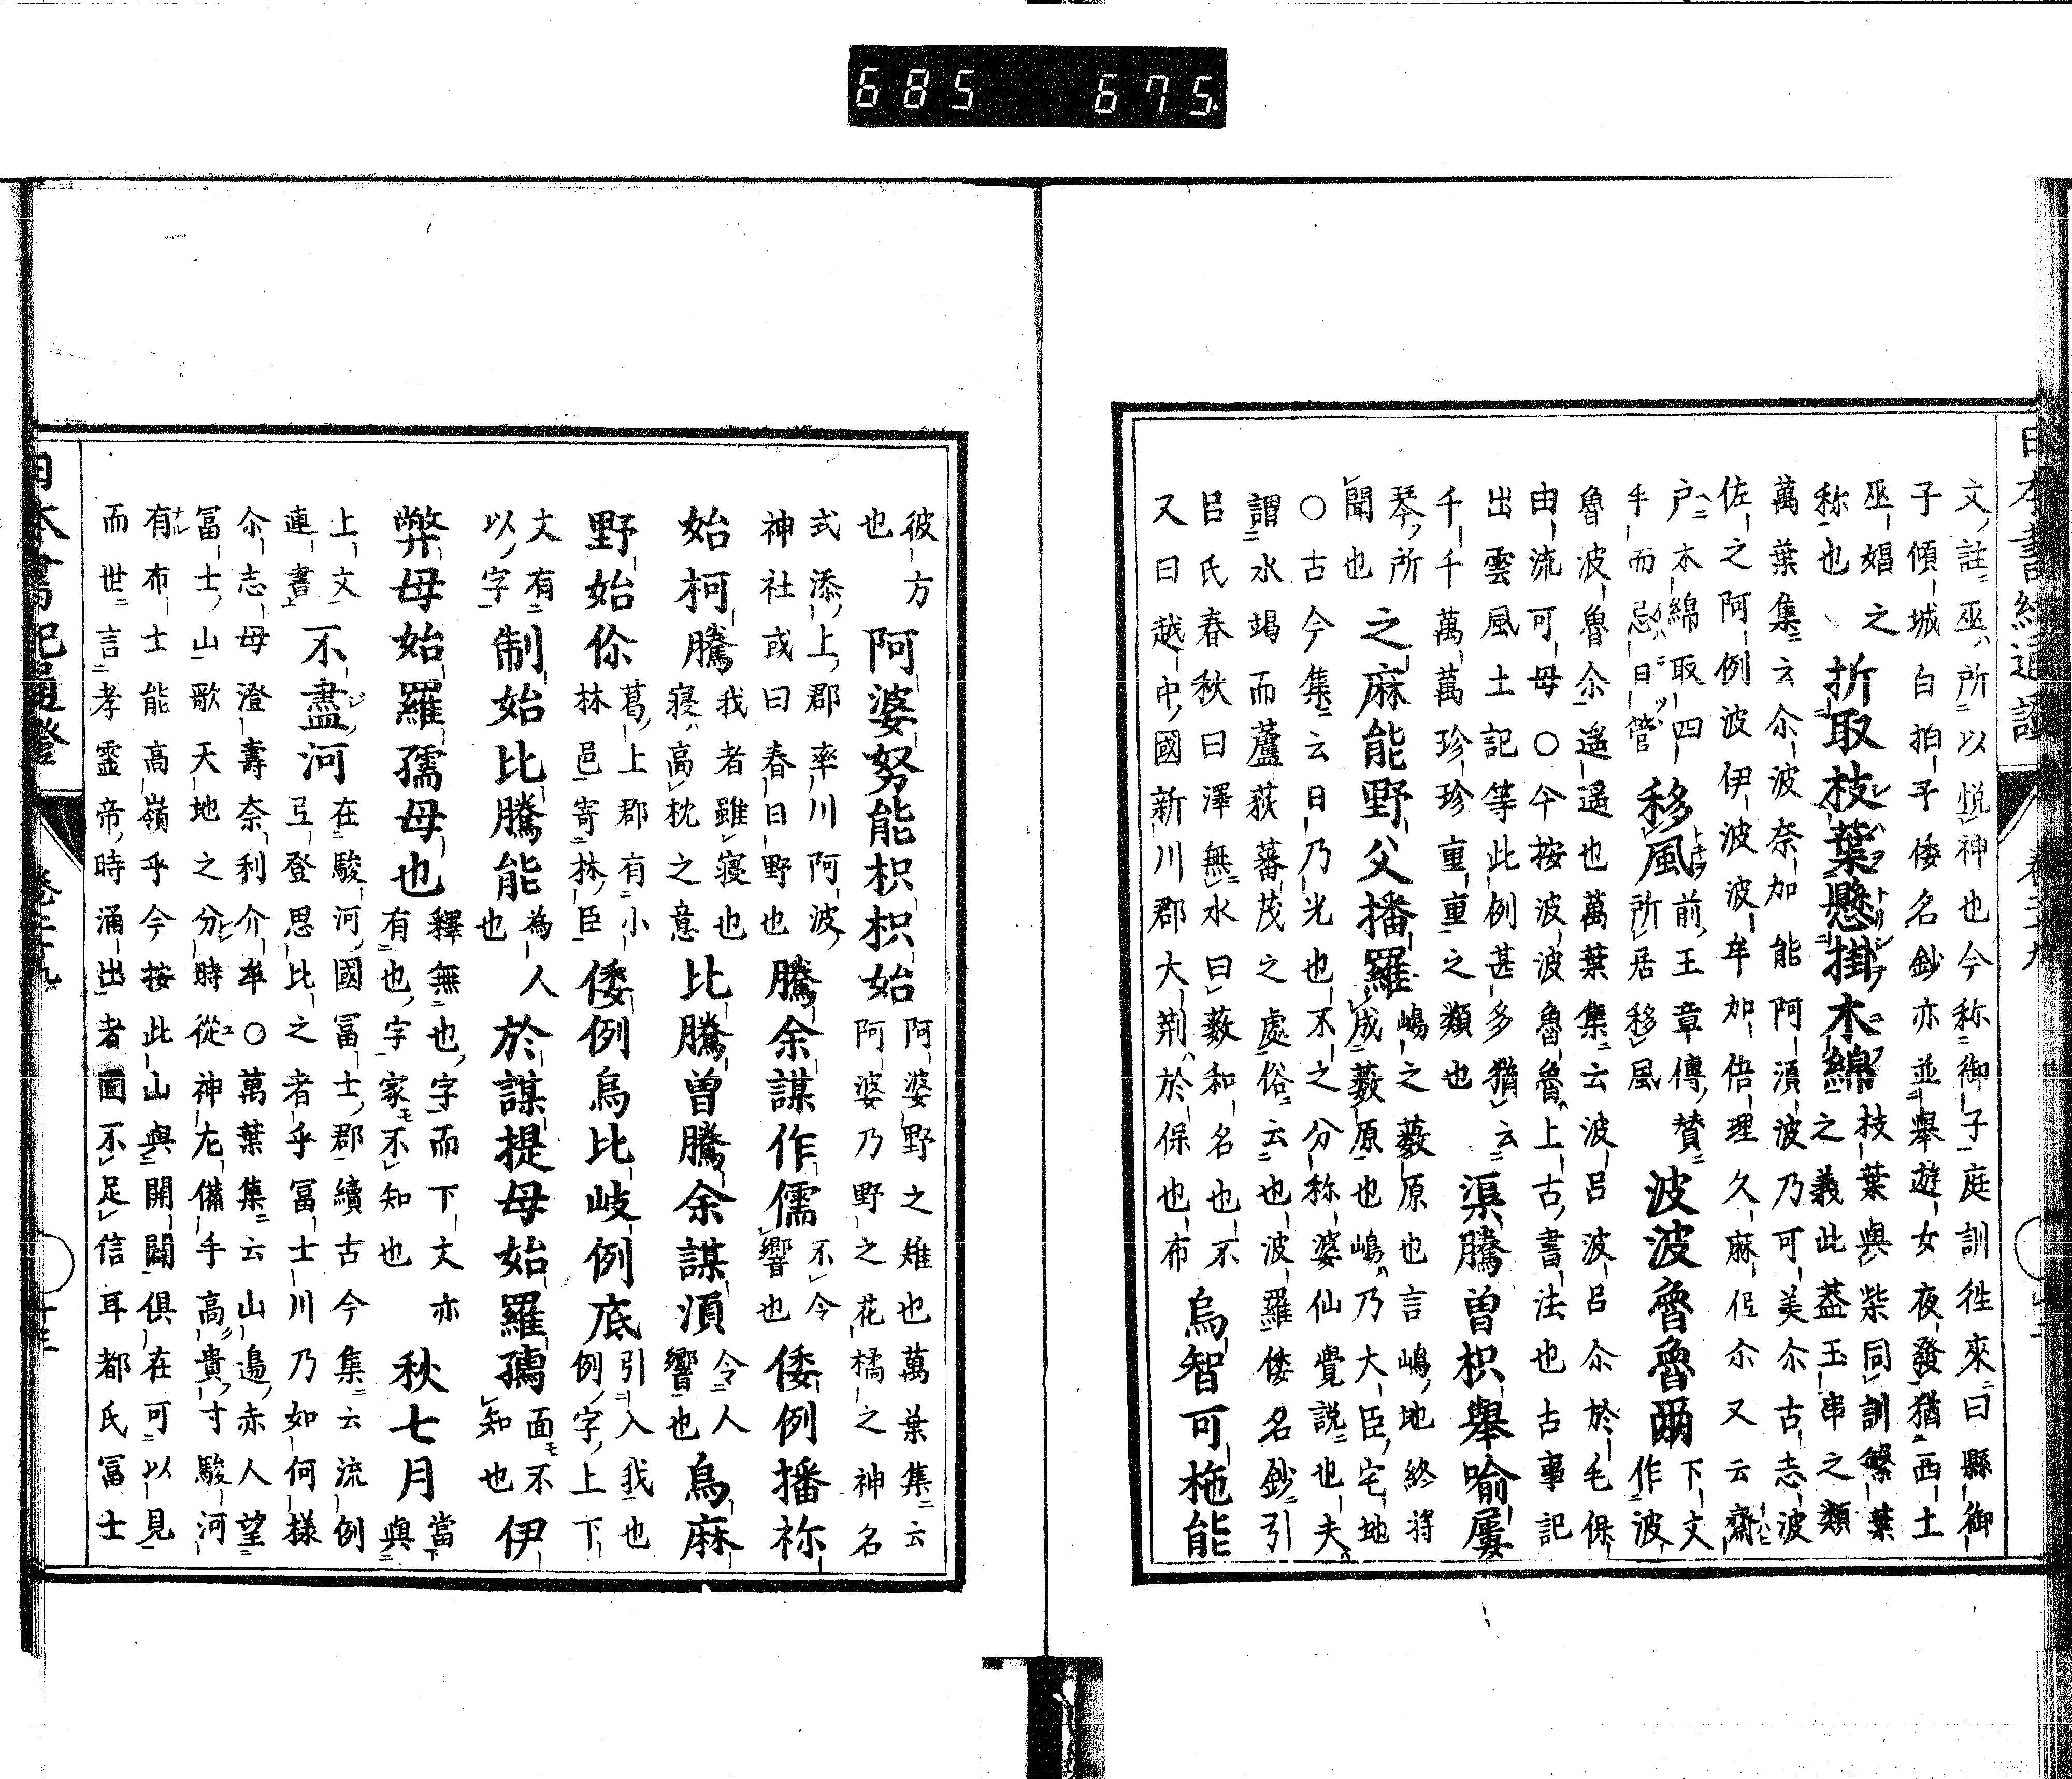 685 675.
文註巫所以悦神也今称御子庭訓徃來曰縣御
子傾城白拍子倭名鈔亦並舉遊女夜發猶西土
巫娼之
称也
折取枝葉懸掛木綿
枝葉與柴同訓繁葉
之義此葢玉串之類
萬葉集云尒波奈加能阿湏波乃可美尒古志波
佐之阿例波伊波波牟加倍理久麻侄尒又云齋
户木綿取四
手而忌日管
移風
前王章傳賛
所居移風
波波魯魯爾
下文
作波
魯波魯尒遙遙也萬葉集云波呂波呂尒於毛保
由流可母○今按波波魯魯上古書法也古事記
出雲風土記等此例甚多猶云
千千萬萬珍珍重重之類也
渠騰曾枳舉喻屢
琴所
聞也
之麻能野父播羅
嶋之薮原也言嶋地終将
成薮原也嶋乃大臣宅地
○古今集云日乃光也不之分称婆仙覺説也夫
謂水竭而蘆荻蕃茂之處俗云也波羅倭名鈔引
呂氏春秋曰澤無水曰薮和名也不
又曰越中國新川郡大荆於保也布
烏智可拖能
彼方
也
阿婆努能枳枳始
阿婆野之雉也萬葉集云
阿婆乃野之花橘之神名
式添上郡率川阿波
神社或曰春日野也
騰余謀作儒
不令
響也
倭例播祢
始柯騰
我者雖寝也
寝高枕之意
比騰曾騰余謀湏
令人
響也
烏麻
野始你
葛上郡有小
林邑寄林臣
倭例烏比岐例底
引入我也
例字上下
文有
以字
制始比騰能
為人
也
於謀提母始羅孺
面不
知也
伊
弊母始羅孺母也
釋無也字而下文亦
有也字家不知也
秋七月
當
與
上文
連書
不盡河
在駿河國冨士郡續古今集云流例
弖登思比之者乎冨士川乃如何様
尒志母澄壽奈利介牟○萬葉集云山邉赤人望
冨士山歌天地之分時從神左備手高貴寸駿河
有布士能高嶺乎今按此山與開闢俱在可以見
而世言孝靈帝時涌出者固不足信耳都氏冨士